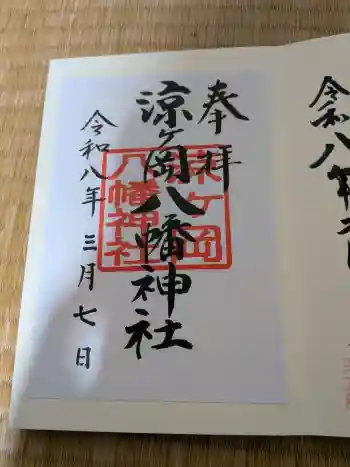 奉拝
涼ヶ岡八幡神社
令和八年三月七日
涼ヶ岡
八幡神社
令和八年